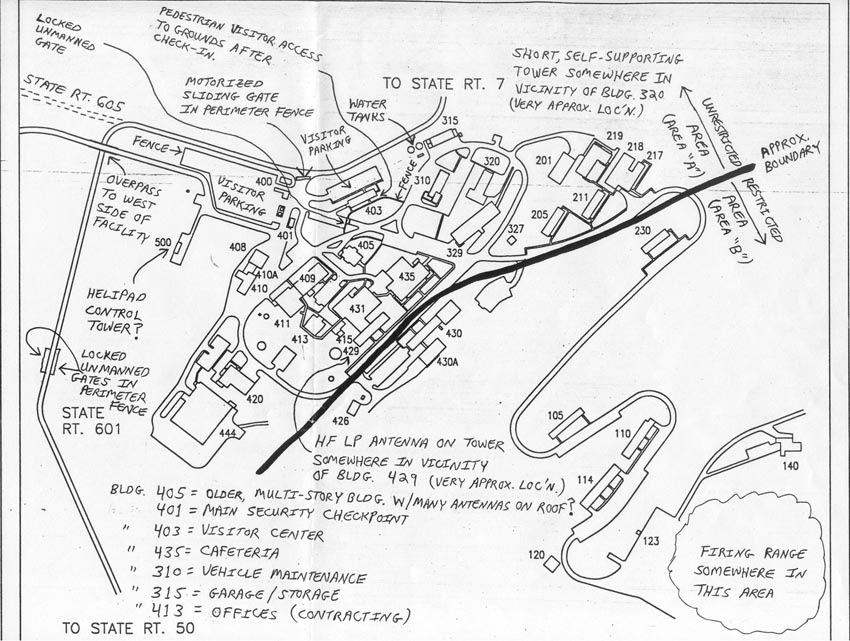 LOCKED
UNMANNED
GATE
PEDESTRIAN VISITOR ACCESS
TO GROUNDS AFTER
CHECK-IN.
MOTORIZED
SLIDING GATE
IN PERIMETER FENCE
TO STATE RT. 7
SHORT, SELF-SUPPORTING
TOWER SOMEWHERE IN
VICINITY OF BLDG. 320
(VERY APPROX. LOC'N.)
STATE RT. 605
WATER
TANKS
315
VISITOR
PARKING
FENCE
FENCE
UNRESTRICTED
AREA
(AREA "A")
APPROX.
BOUNDARY
RESTRICTED
AREA
(AREA "B")
219
218
217
201
320
310
400
403
VISITOR
PARKING
OVERPASS
TO WEST
SIDE OF
FACILITY
211
205
327
230
401
500
408
405
329
410A
410
409
435
HELIPAD
CONTROL
TOWER?
411
431
413
415
429
430
430A
LOCKED
UNMANNED
GATES IN
PERIMETER
FENCE
STATE
RT. 601
420
444
426
105
110
114
140
123
120
HF LP ANTENNA ON TOWER
SOMEWHERE IN VICINITY
OF BLDG. 429 (VERY APPROX. LOC'N.)
BLDG. 405 = OLDER, MULTI-STORY BLDG. W/MANY ANTENNAS ON ROOF?
" 401 = MAIN SECURITY CHECKPOINT
" 403 = VISITOR CENTER
" 435 = CAFETERIA
" 310 = VEHICLE MAINTENANCE
" 315 = GARAGE/STORAGE
" 413 = OFFICES (CONTRACTING)
FIRING RANGE
SOMEWHERE IN
THIS AREA
TO STATE RT. 50